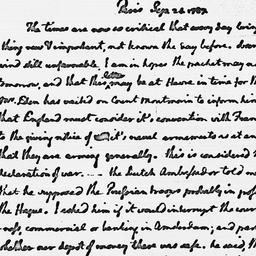 Paris Sep. 22. 1787
The times are now so critical that every day brings
thing new & important, not known the day before.
wind still unfavorable. I am in hopes the packet may
tomorrow, and that this letter may be at Havre in time for th
Eden has waited on Count Montmorin to inform him
that England must consider it's convention with Fran
to the giving notice of it's naval armaments as at an
that they are arming generally. this is considered
declaration of war. --- the Dutch Ambassador told me
that he supposed the Prussian troops probably in poss
the Hague. I asked him if it would interrupt the cour
commercial or banking in Amsterdam; and par
whether our depot of money there was safe. he said, th